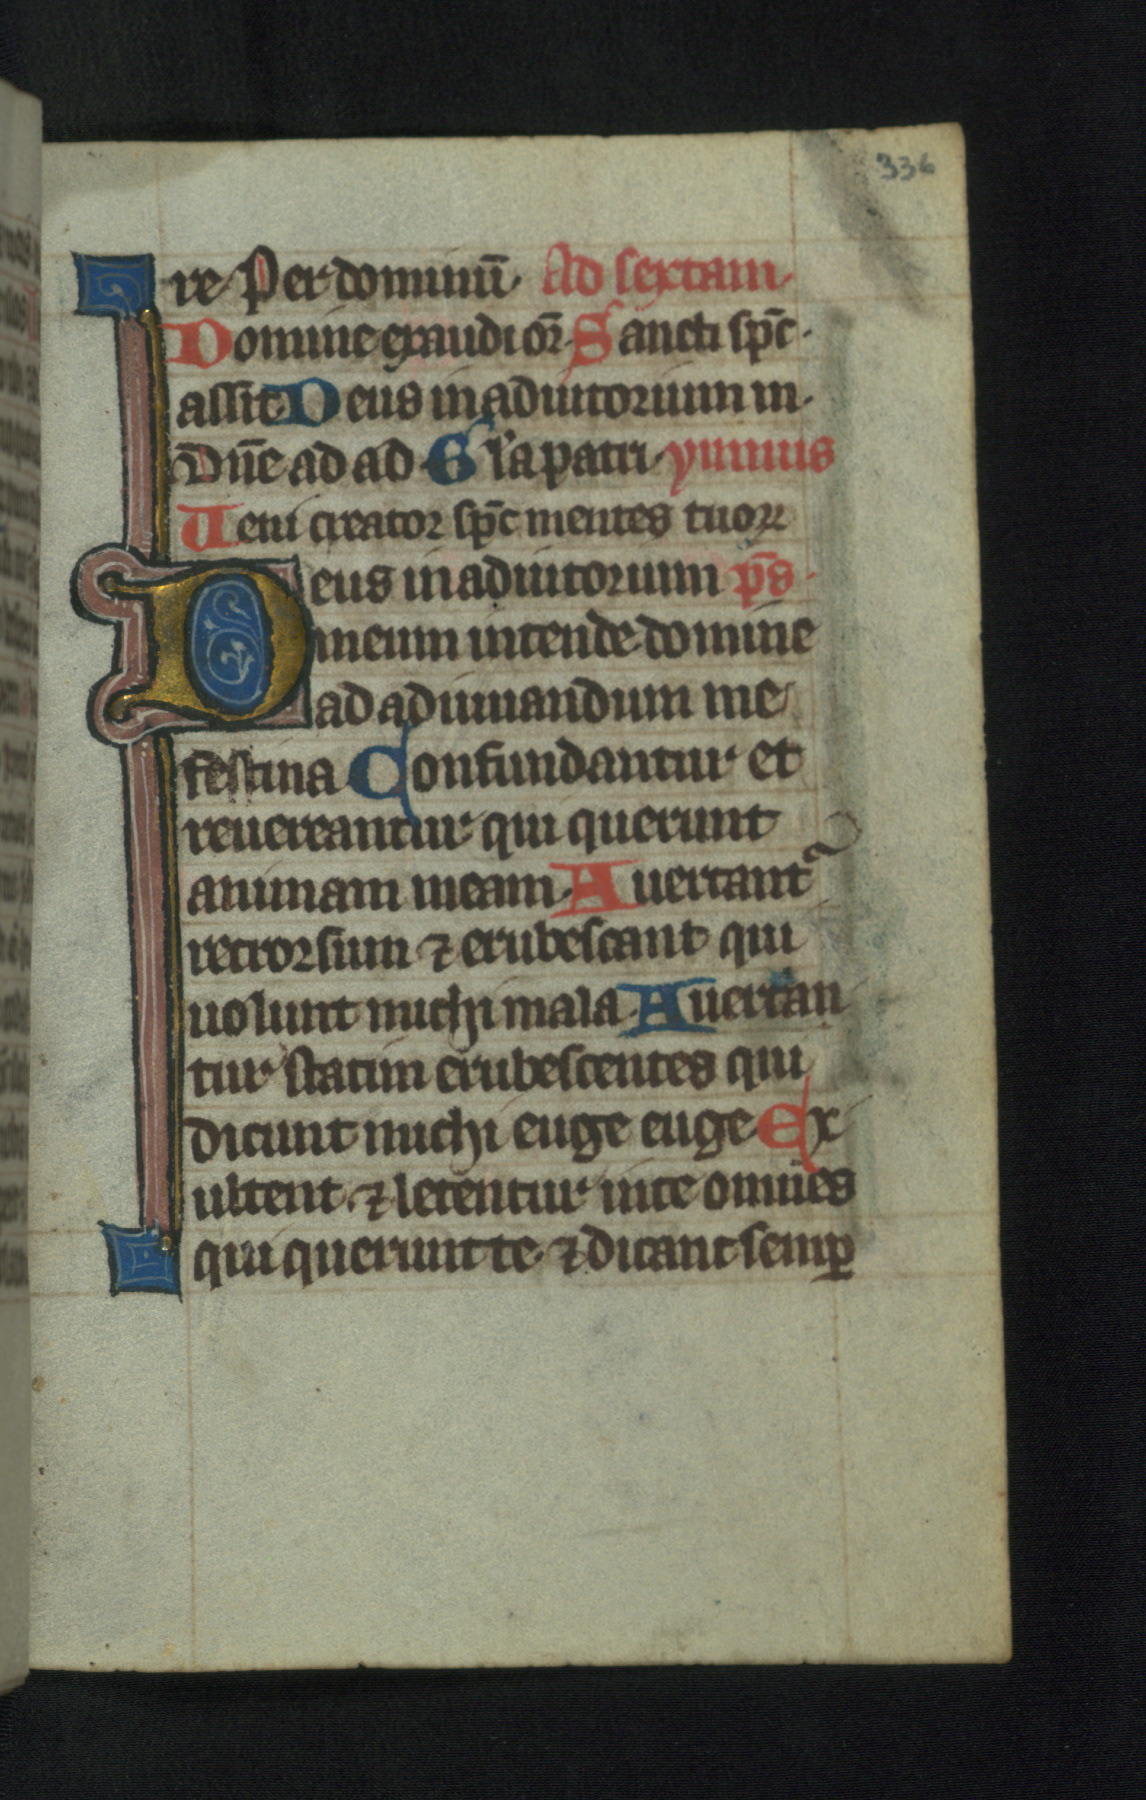 336
re Per dominū. Ad sextam.
Domine exaudi or̄. Sancti sp̄c.
assit. Deus in adiutorium in.
Dn̄e ad ad. Gl'a patri. ymnus
Ueni creator sp̄c mentes tuoꝝ
Deus in adiutorium p̄s.
meum intende domine
ad adiuuandum me
festina Confundantur et
reuereantur qui querunt
animam meam. Auertantᷓ
retrorsum ⁊ erubescant qui
uolunt michi mala. Auertan
tur statim erubescentes qui
dicunt michi euge euge. Ex
ultent. ⁊ letentur in te omnes
qui querunt te. ⁊ dicant semꝑ